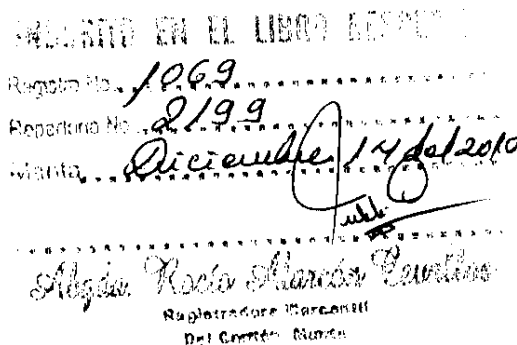 INSCRITO EN EL LIBRO
Registro No. 1069
Repertorio No. 2199
Manta, Diciembre 14 del 2010
Abgda. Rocío Alarcón Cevallos
Registradora Mercantil
Del Cantón Manta